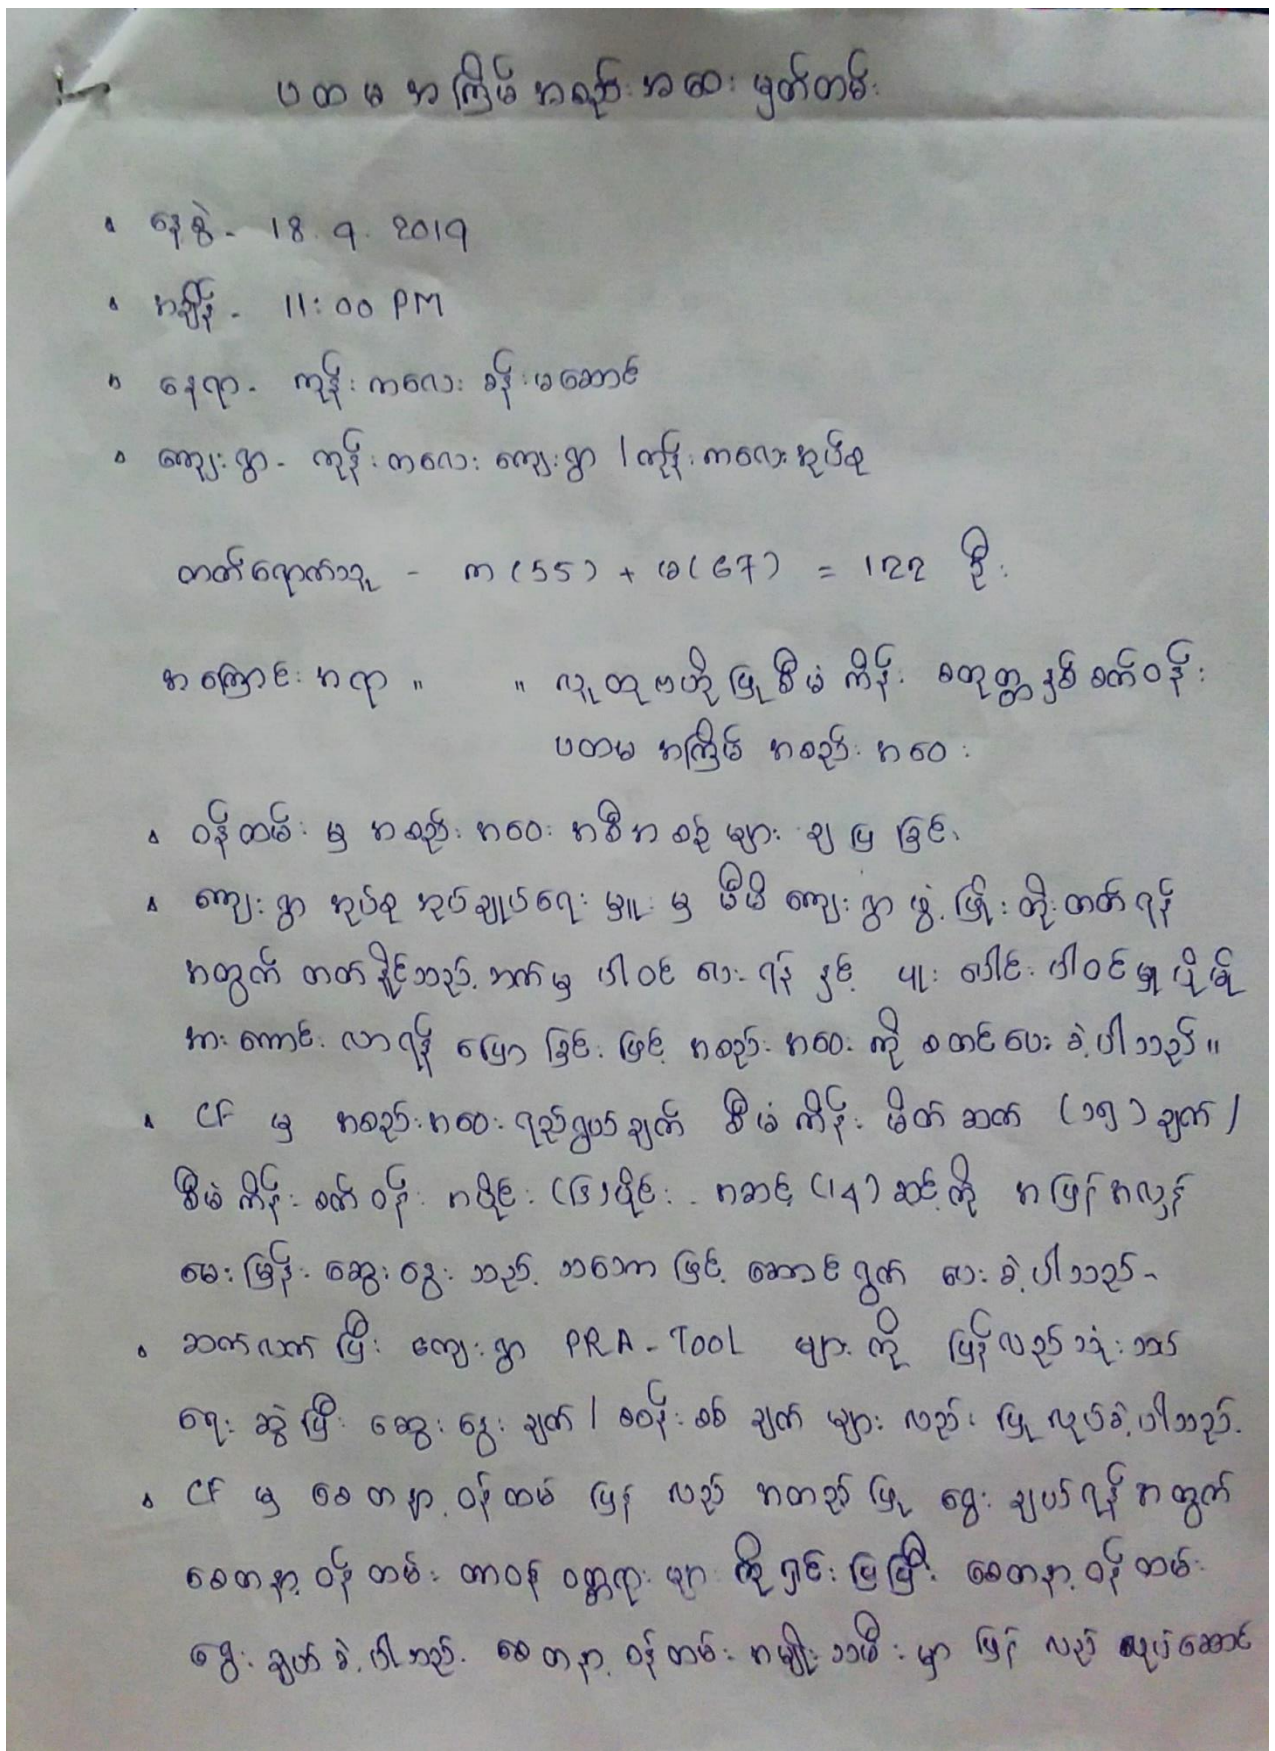 ပထမအကြိမ် အစည်းအဝေး မှတ်တမ်း
နေ့စွဲ - 18.9.2019
အချိန် - 11:00 PM
နေရာ - ကုန်းကလေး ခန်းမဆောင်
ကျေးရွာ - ကုန်းကလေး ကျေးရွာ / ကုန်းကလေးအုပ်စု
တက်ရောက်သူ - က (55) + မ (67) = 122 ဦး
အကြောင်းအရာ ။ ။ လူထုဗဟိုပြုစီမံကိန်း စတုတ္ထနှစ်စက်ဝန်း
ပထမအကြိမ် အစည်းအဝေး
ဝန်ထမ်းမှ အစည်းအဝေး အစီအစဉ်များ ချပြခြင်း
ကျေးရွာအုပ်စု အုပ်ချုပ်ရေးမှူးမှ မိမိကျေးရွာ ဖွံ့ဖြိုးတိုးတက်ရန်
အတွက် တတ်နိုင်သည့်ဘက်မှ ပါဝင်ပေးရန်နှင့် ပူးပေါင်းပါဝင်မှု ပိုမို
အားကောင်းလာရန် ပြောခြင်းဖြင့် အစည်းအဝေးကို စတင်ပေးခဲ့ပါသည်။
CF မှ အစည်းအဝေးရည်ရွယ်ချက် စီမံကိန်း မိတ်ဆက် (၁၅) ချက် /
စီမံကိန်းစက်ဝန်း အပိုင်း (၆) ပိုင်း အဆင့် (14) ဆင့်ကို အပြန်အလှန်
မေးမြန်းဆွေးနွေးသည့် သဘောဖြင့် ဆောင်ရွက်ပေးခဲ့ပါသည်-
ဆက်လက်ပြီး ကျေးရွာ PRA-TOOL များကို ပြန်လည်သုံးသပ်
ရေးဆွဲပြီး ဆွေးနွေးချက် / စစ်ချက်များလည်း ပြုလုပ်ခဲ့ပါသည်.
CF မှ စေတနာ့ဝန်ထမ်း ပြန်လည် အတည်ပြု ရွေးချယ်ရန်အတွက်
စေတနာ့ဝန်ထမ်း တာဝန်ဝတ္တရားများကို ရှင်းပြပြီး စေတနာ့ဝန်ထမ်း
ရွေးချယ်ခဲ့ပါသည်. စေတနာ့ဝန်ထမ်း အမျိုးသမီးမှာ ပြန်လည် လုပ်ဆောင်